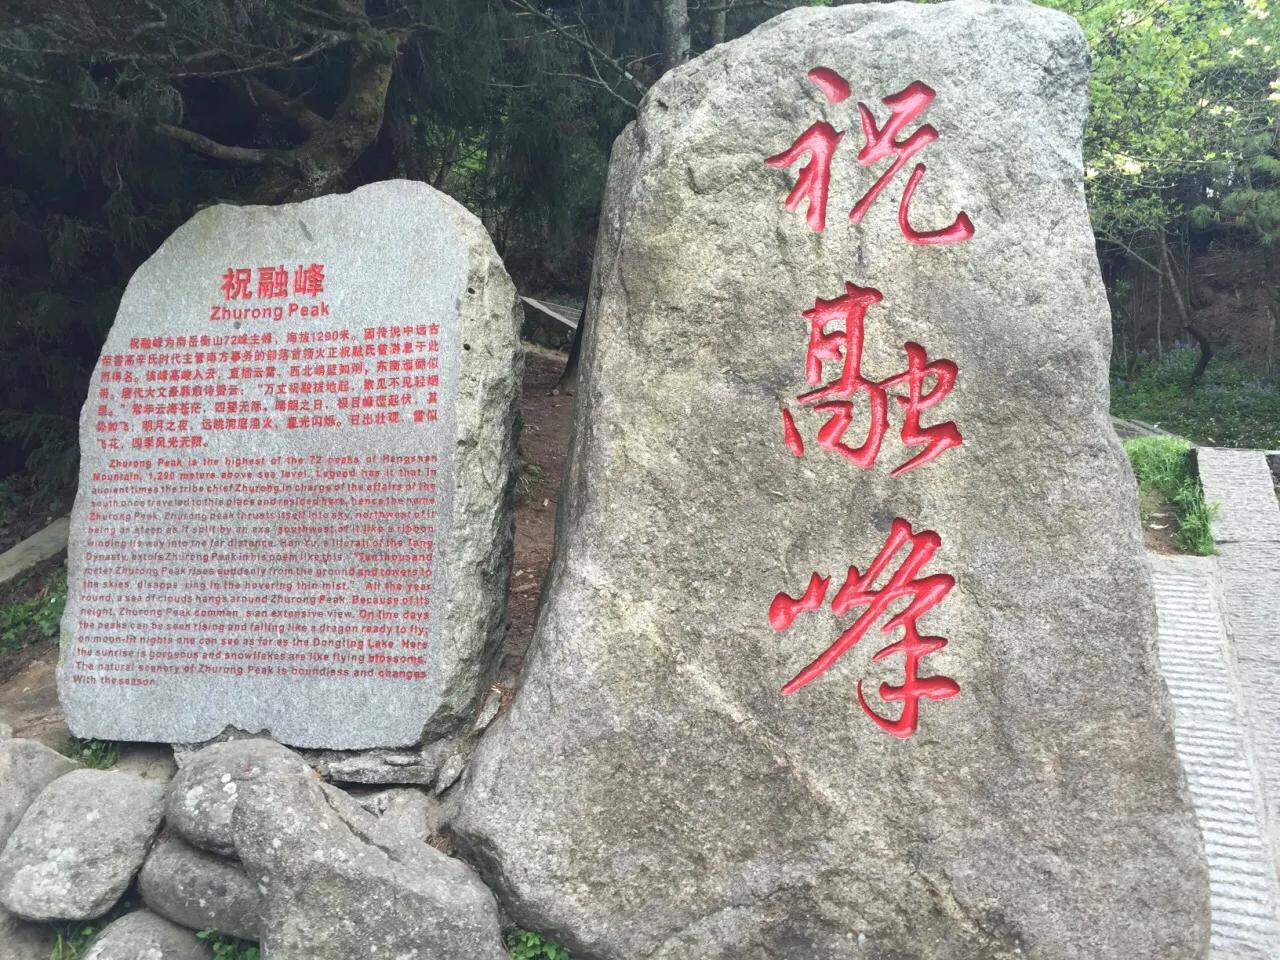 祝融峰
Zhurong Peak
祝融峰为南岳衡山72峰主峰，海拔1290米。因传说中远古
帝喾高辛氏时代主管南方事务的部落首领火正祝融氏曾游息于此
而得名。该峰高峻入云，直插云霄，西北峭壁如削，东南逶迤似
带。唐代大文豪韩愈诗曾云："万丈祝融拔地起，欲见不见轻烟
里。"常年云海苍茫，四望无际，晴朗之日，极目峰峦起伏，其
势如飞；明月之夜，远眺洞庭渔火，星光闪烁。日出壮观，雪似
飞花，四季风光无限。
Zhurong Peak is the highest of the 72 peaks of Hengshan
Mountain, 1,290 meters above sea level. Legend has it that in
ancient times the tribe chief Zhurong in charge of the affairs of the
south once traveled to this place and resided here, hence the name
Zhurong Peak. Zhurong peak thrusts itself into sky, northwest of it
being as steep as if split by an axe, southwest of it like a ribbon
winding its way into the far distance. Han Yu, a literati of the Tang
Dynasty, extols Zhurong Peak in his poem like this, "Ten thousand
meter Zhurong Peak rises suddenly from the ground and towers to
the skies, disappe ring in the hovering thin mist." All the year
round, a sea of clouds hangs around Zhurong Peak. Because of its
height, Zhurong Peak comman s an extensive view. On fine days
the peaks can be seen rising and falling like a dragon ready to fly;
on moon-lit nights one can see as far as the Dongting Lake. Here
the sunrise is gorgeous and snowflakes are like flying blossoms.
The natural scenery of Zhurong Peak is boundless and changes
With the season.
祝融峰